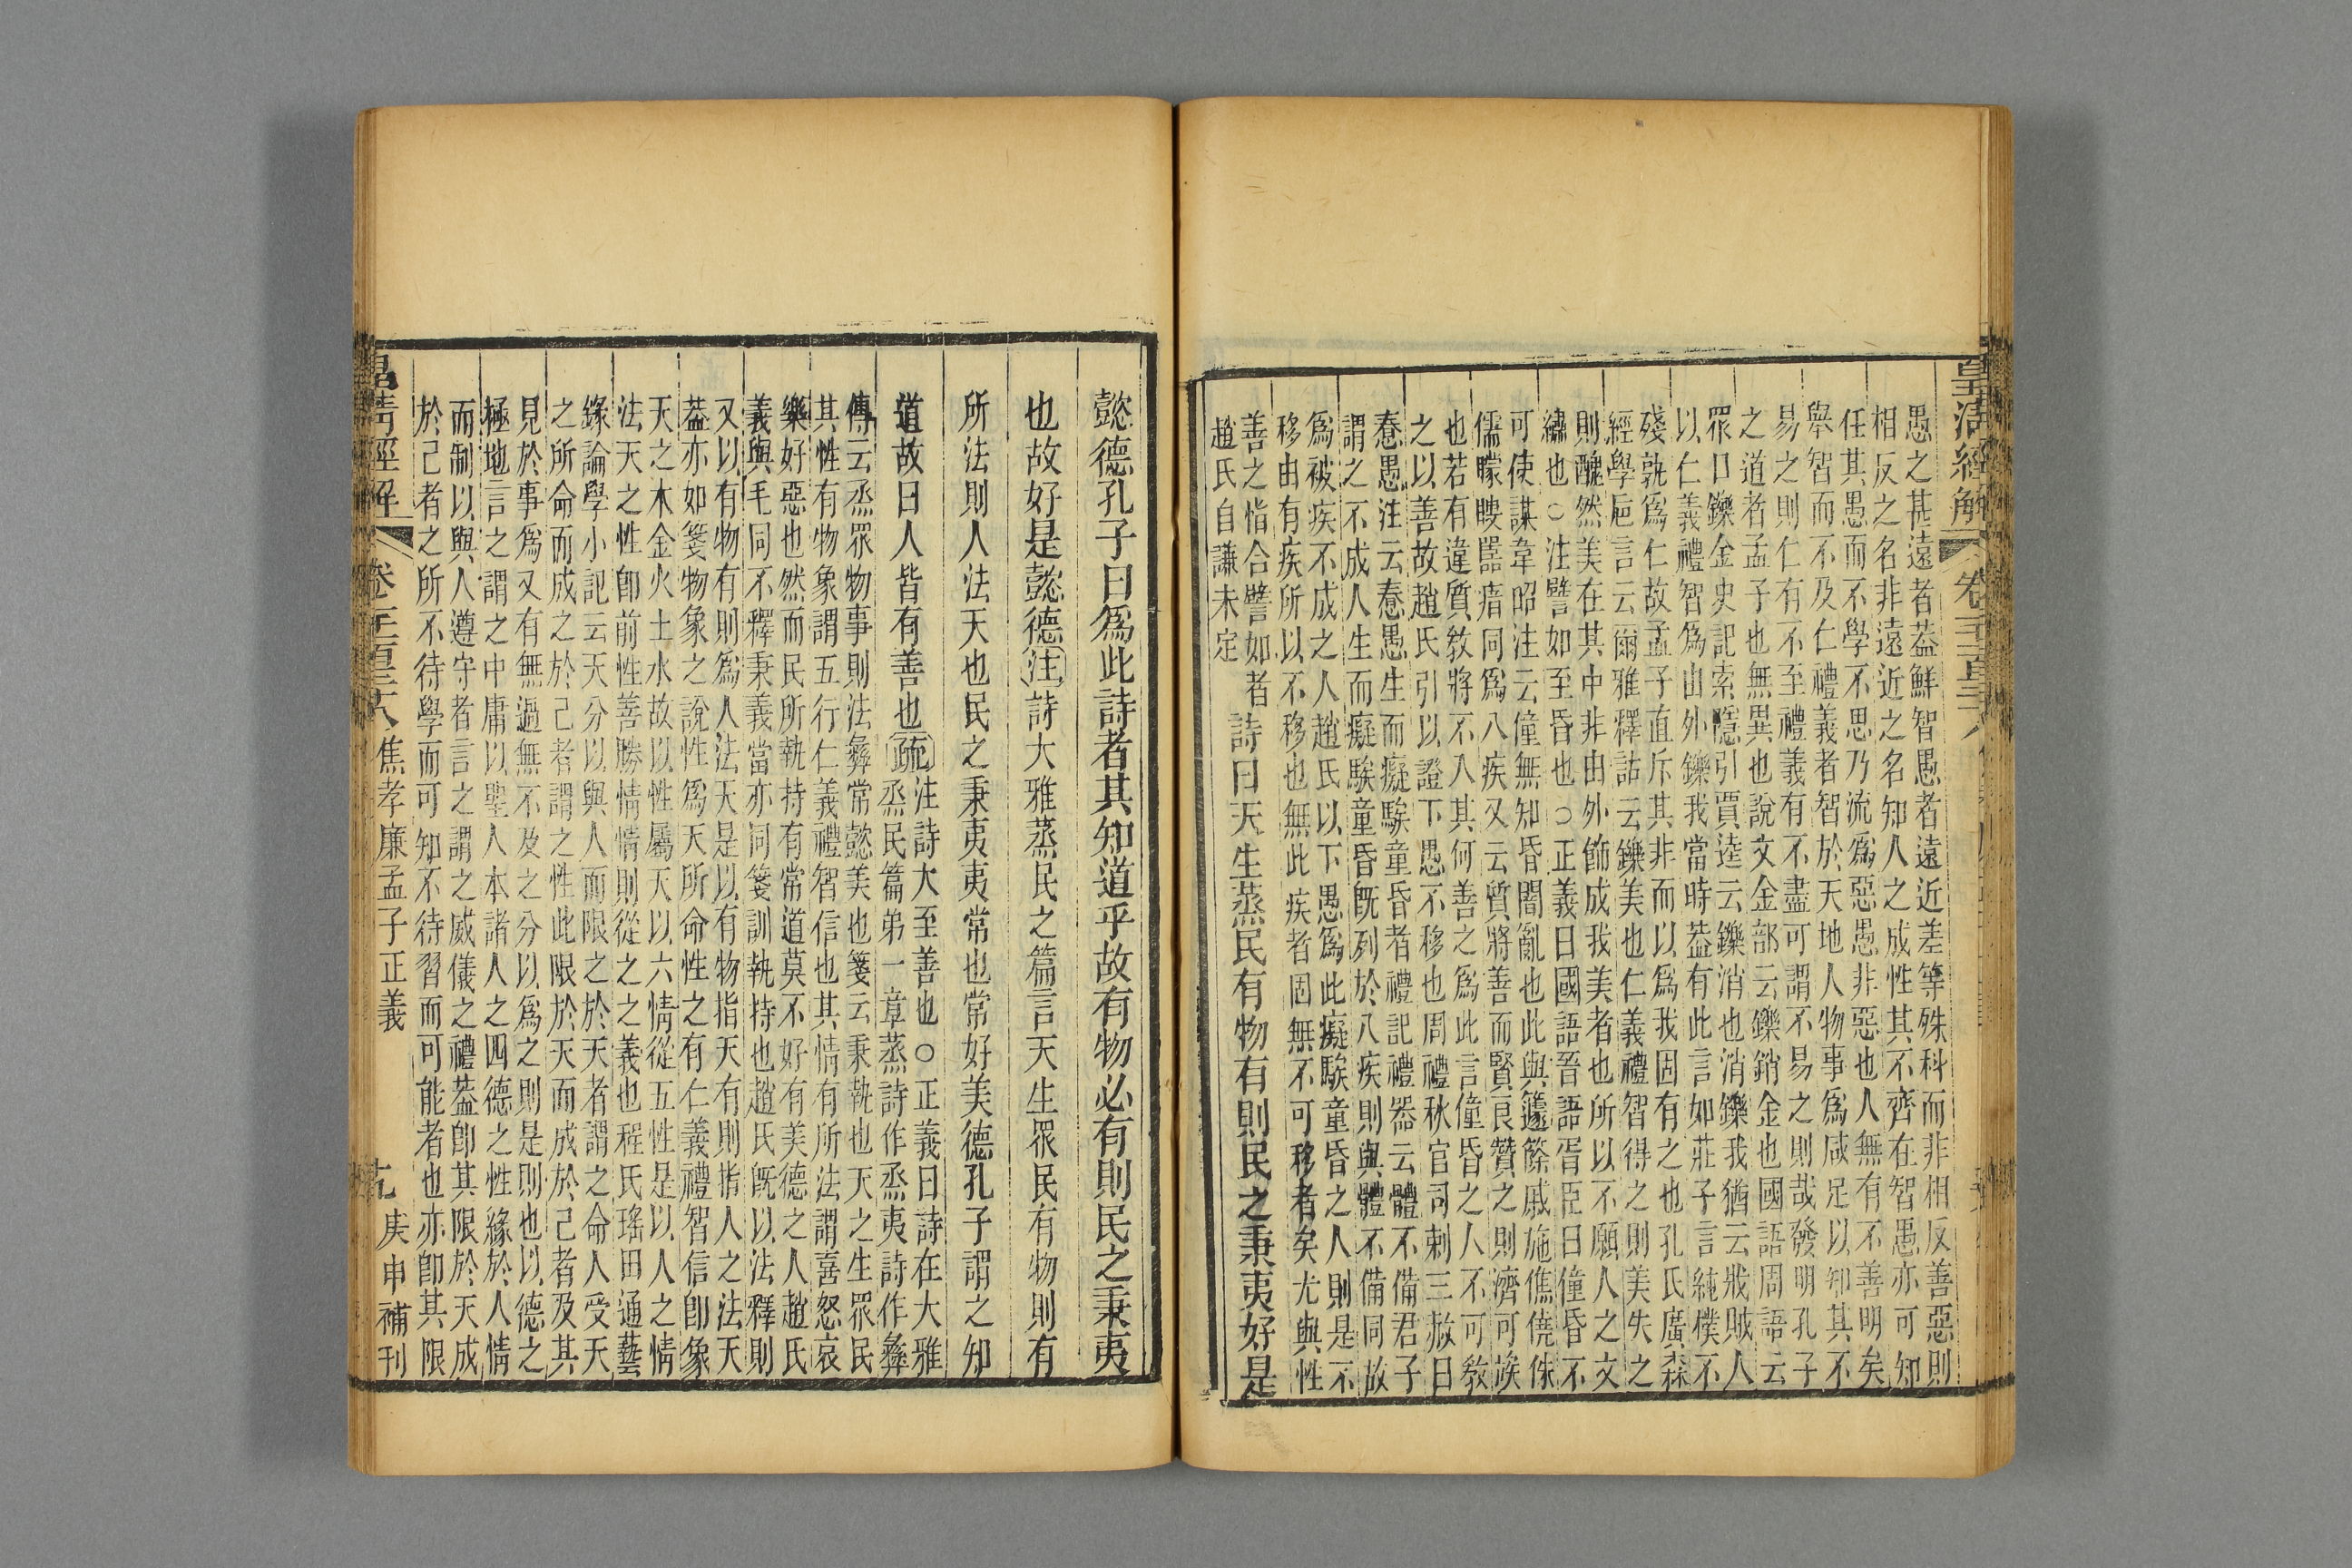 皇清經解
愚之甚遠者葢鮮智愚者遠近差等殊科而非相反善惡則
相反之名非遠近之名知人之成性其不齊在智愚亦可知
任其愚而不學不思乃流爲惡愚非惡也人無有不善明矣
舉智而不及仁禮義者智於天地人物事爲咸足以知其不
易之則仁有不至禮義有不盡可謂不易之則哉發明孔子
之道者孟子也無異也說文金部云鑠銷金也國語周語云
眾口鑠金史記索隱引賈逵云鑠消也消鑠我猶云戕賊人
以仁義禮智爲由外鑠我當時葢有此言如莊子言純樸不
殘孰爲仁故孟子直斥其非而以爲我固有之也孔氏廣森
經學巵言云爾雅釋詁云鑠美也仁義禮智得之則美失之
則醜然美在其中非由外飾成我美者也所以不願人之文
繡也○注譬如至昏也○正義曰國語晉語胥臣曰僮昏不
可使謀韋昭注云僮無知昏闇亂也此與籧篨戚施僬僥侏
儒矇瞍嚚瘖同爲八疾又云質將善而賢良贊之則濟可竢
也若有違質敎將不入其何善之爲此言僮昏之人不可敎
之以善故趙氏引以證下愚不移也周禮秋官司刺三赦曰
惷愚注云惷愚生而癡騃童昏者禮記禮器云體不備君子
謂之不成人生而癡騃童昏旣列於八疾則與體不備同故
爲被疾不成之人趙氏以下愚爲此癡騃童昏之人則是不
移由有疾所以不移也無此疾者固無不可移者矣尤與性
善之恉合譬如者
趙氏自謙未定
詩曰天生蒸民有物有則民之秉夷好是
懿德孔子曰爲此詩者其知道乎故有物必有則民之秉夷
也故好是懿德注詩大雅蒸民之篇言天生眾民有物則有
所法則人法天也民之秉夷夷常也常好美德孔子謂之知
道故曰人皆有善也疏
注詩大至善也○正義曰詩在大雅
烝民篇弟一章蒸詩作烝夷詩作彝
傳云烝眾物事則法彝常懿美也箋云秉執也天之生眾民
其性有物象謂五行仁義禮智信也其情有所法謂喜怒哀
樂好惡也然而民所執持有常道莫不好有美德之人趙氏
義與毛同不釋秉義當亦同箋訓執持也趙氏旣以法釋則
又以有物有則爲人法天是以有物指天有則指人之法天
葢亦如箋物象之說性爲天所命性之有仁義禮智信卽象
天之木金火土水故以性屬天以六情從五性是以人之情
法天之性卽前性善勝情情則從之之義也程氏瑤田通藝
錄論學小記云天分以與人而限之於天者謂之命人受天
之所命而成之於己者謂之性此限於天而成於己者及其
見於事爲又有無過無不及之分以爲之則是則也以德之
極地言之謂之中庸以聖人本諸人之四德之性緣於人情
而制以與人遵守者言之謂之威儀之禮葢卽其限於天成
於己者之所不待學而可知不待習而可能者也亦卽其限
焦孝廉孟子正義
庚申補刊